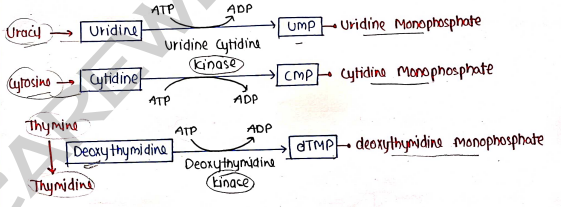 ATP ADP
Uracil → Uridine → UMP → Uridine Monophosphate
Uridine Cytidine
Kinase
Cytosine → Cytidine → CMP → Cytidine Monophosphate
ATP ADP
Thymine
ATP ADP
Deoxythymidine → dTMP → deoxythymidine Monophosphate
Deoxythymidine
Thymidine
Kinace